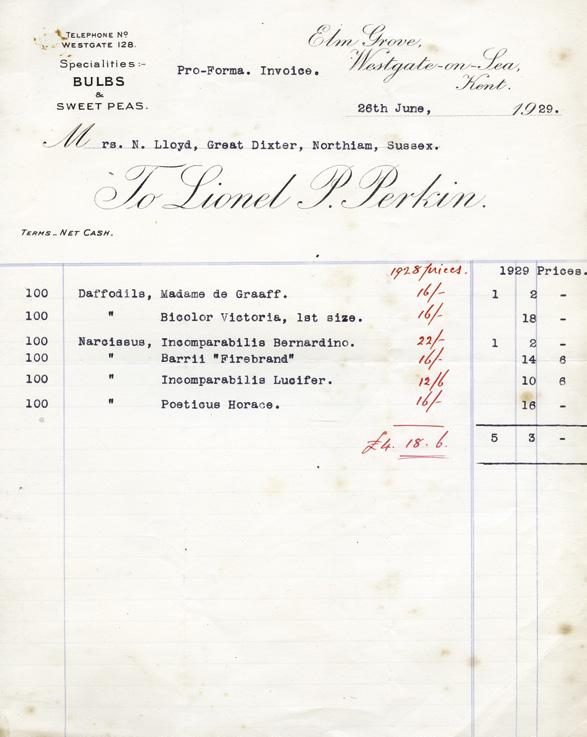 TELEPHONE Nº
WESTGATE 128.
Specialities:-
BULBS
&
SWEET PEAS.
Pro-Forma. Invoice.
Elm Grove,
Westgate-on-Sea,
Kent.
26th June, 1929.
Mrs. N. Lloyd, Great Dixter, Northiam, Sussex.
To Lionel P. Perkin.
TERMS_NET CASH.
1928 prices. 1929 Prices.
100 Daffodils, Madame de Graaff. 16/- 1 2 -
100 " Bicolor Victoria, 1st size. 16/- 18 -
100 Narcissus, Incomparabilis Bernardino. 22/- 1 2 -
100 " Barrii "Firebrand" 16/- 14 6
100 " Incomparabilis Lucifer. 12/6 10 6
100 " Poeticus Horace. 16/- 16 -
£4. 18. 6. 5 3 -